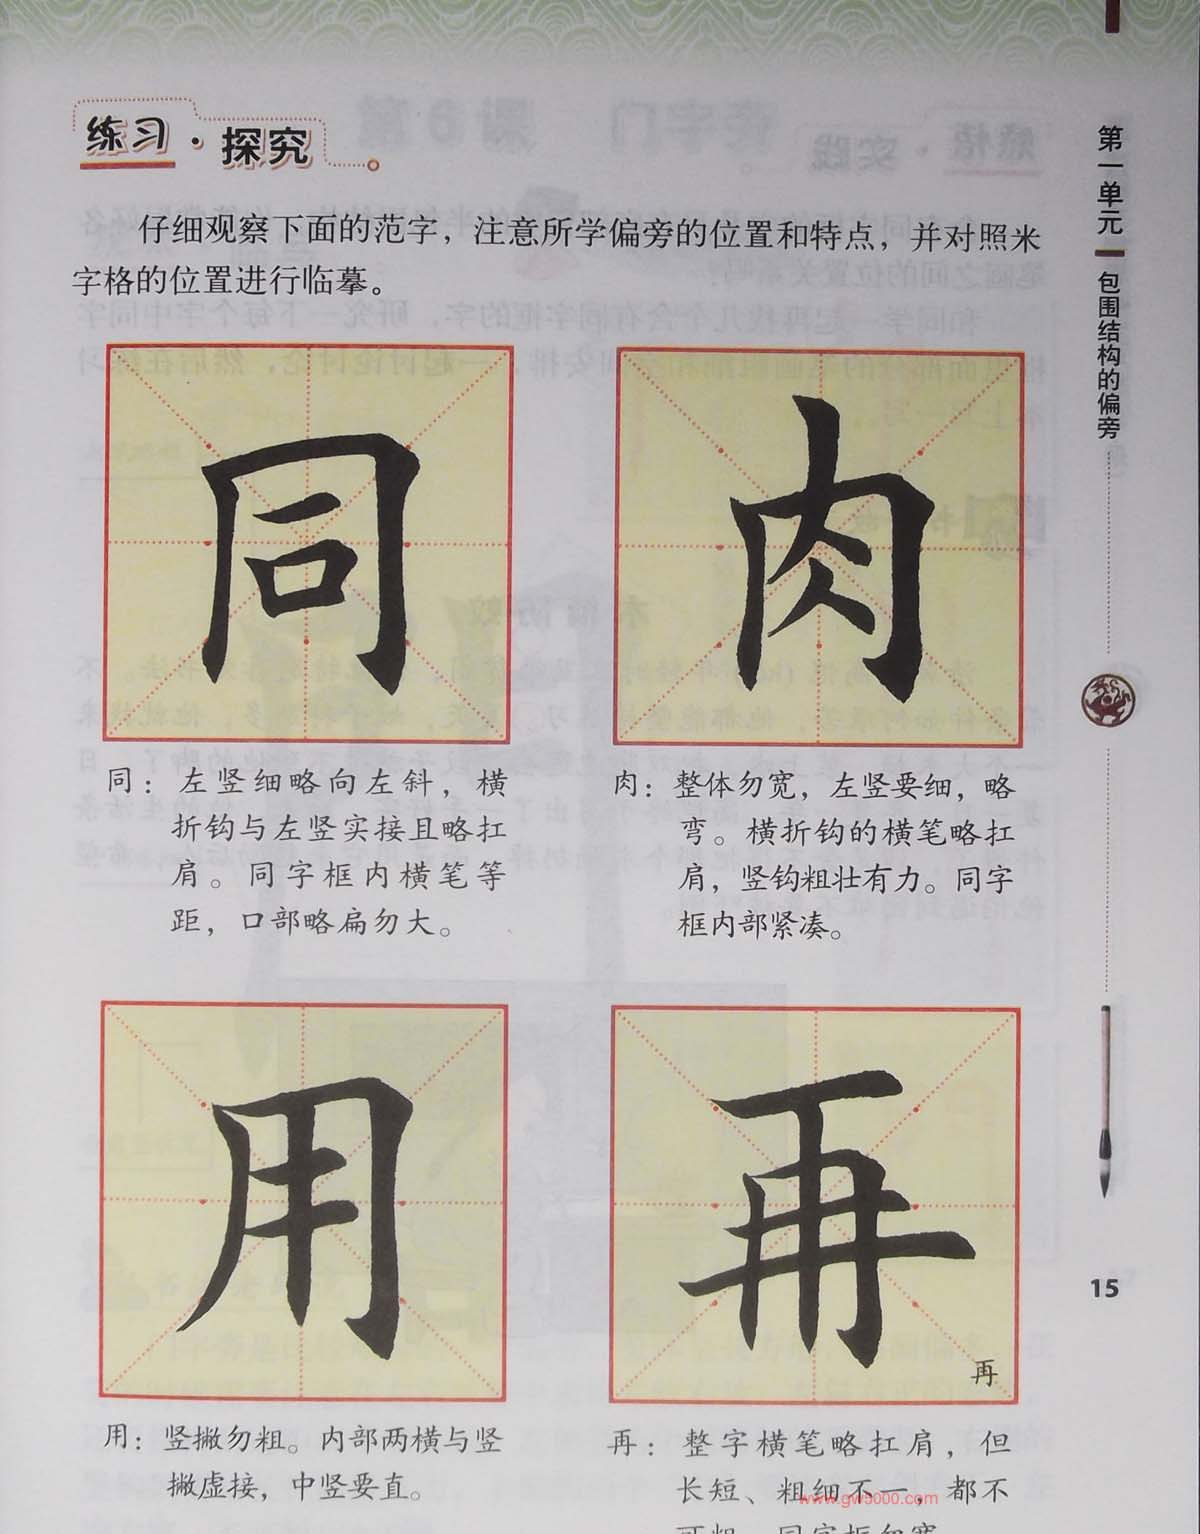 练习·探究
仔细观察下面的范字，注意所学偏旁的位置和特点，并对照米
字格的位置进行临摹。
同
肉
同：左竖细略向左斜，横
折钩与左竖实接且略扛
肩。同字框内横笔等
距，口部略扁勿大。
肉：整体勿宽，左竖要细，略
弯。横折钩的横笔略扛
肩，竖钩粗壮有力。同字
框内部紧凑。
用
再
再
用：竖撇勿粗。内部两横与竖
撇虚接，中竖要直。
再：整字横笔略扛肩，但
长短、粗细不一，都不
可粗。同字框勿宽
www.gw5000.com
第一单元
包围结构的偏旁
15